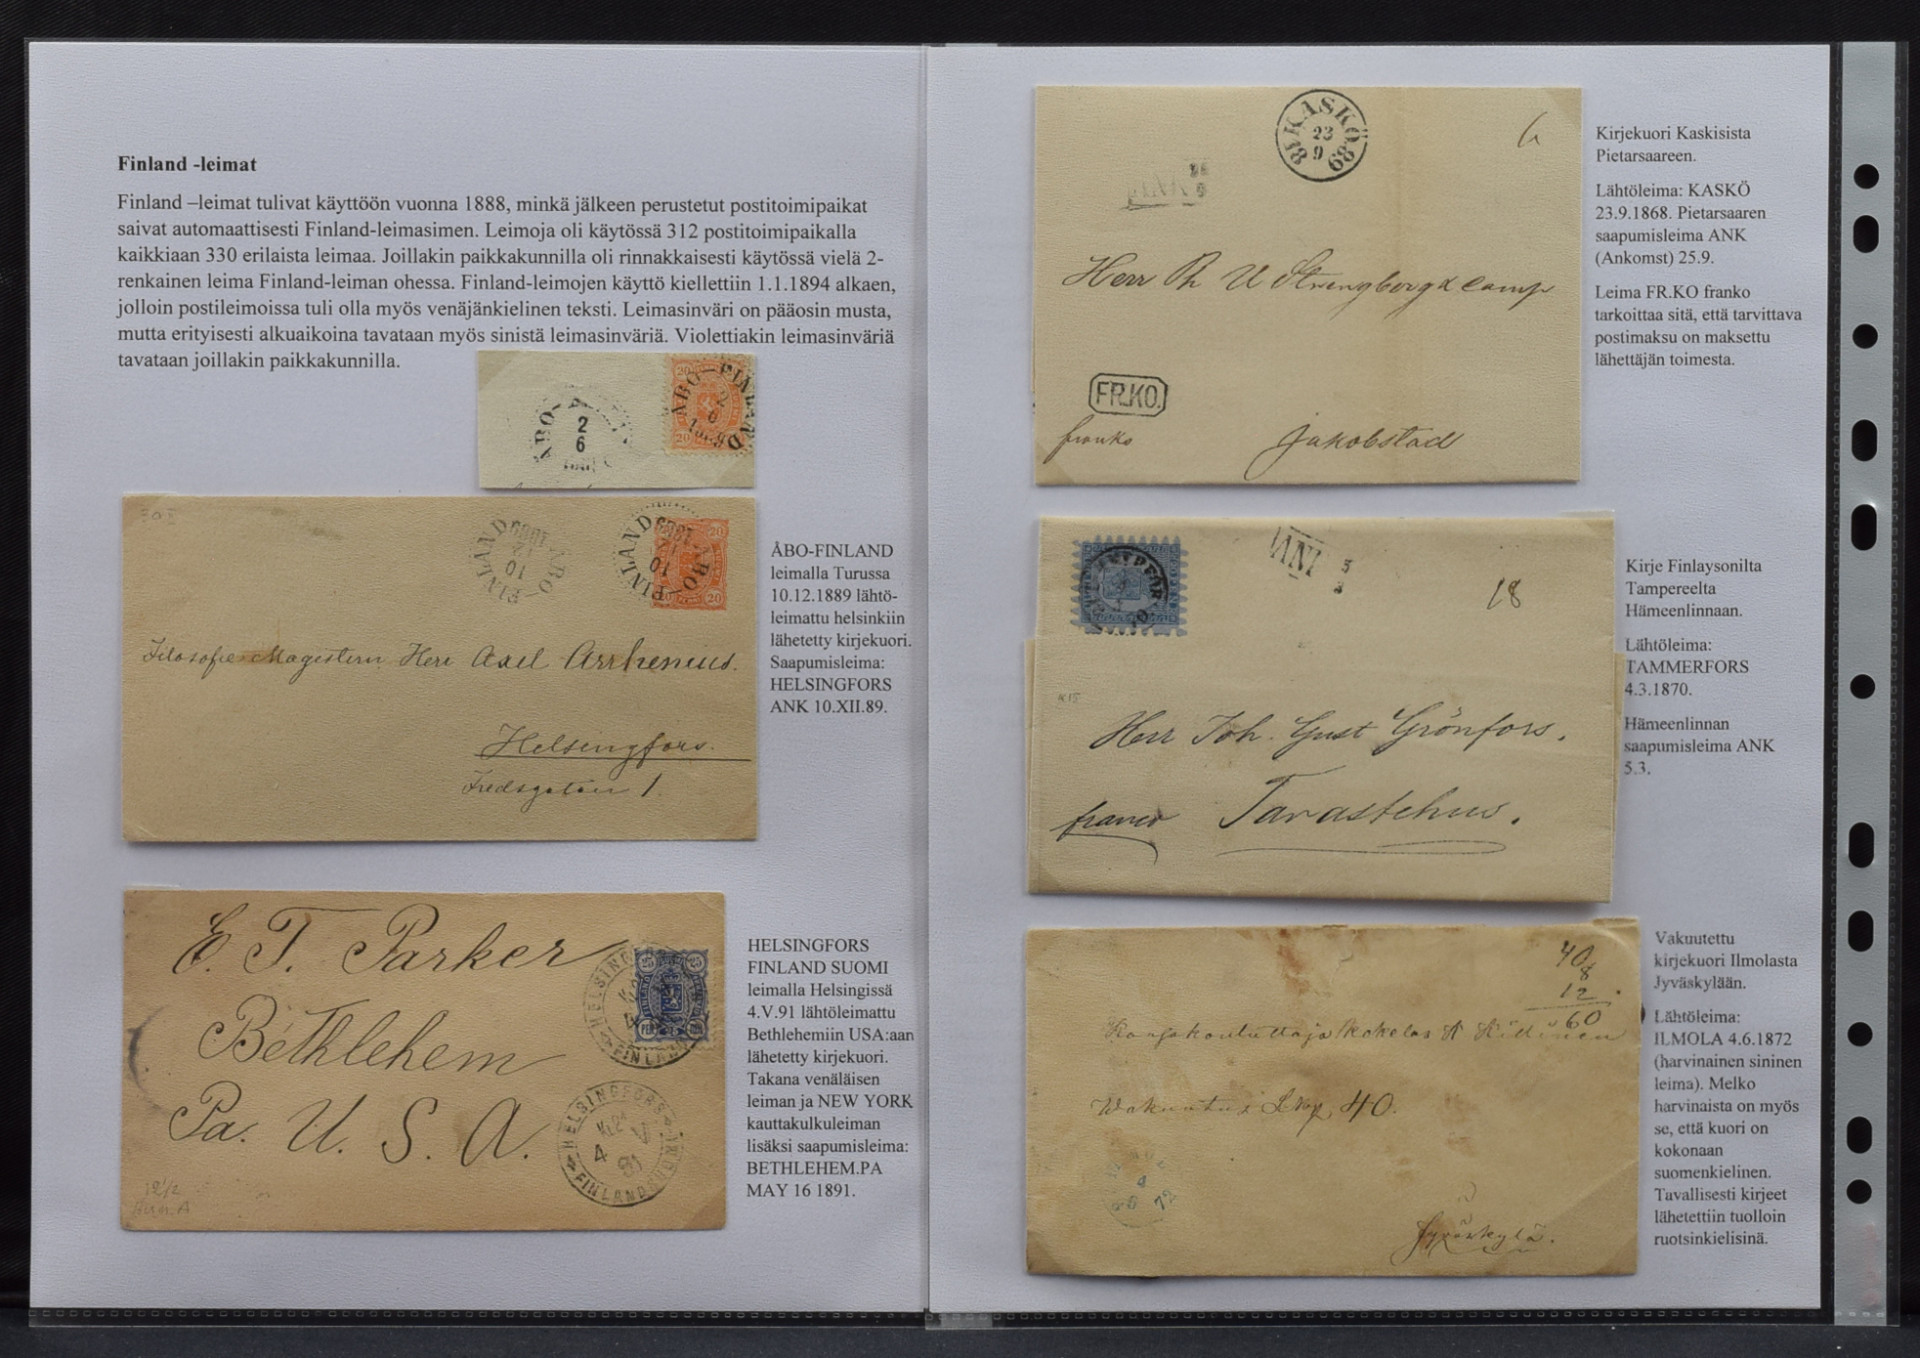 Finland -leimat
Finland –leimat tulivat käyttöön vuonna 1888, minkä jälkeen perustetut postitoimipaikat
saivat automaattisesti Finland-leimasimen. Leimoja oli käytössä 312 postitoimipaikalla
kaikkiaan 330 erilaista leimaa. Joillakin paikkakunnilla oli rinnakkaisesti käytössä vielä 2-
renkainen leima Finland-leiman ohessa. Finland-leimojen käyttö kiellettiin 1.1.1894 alkaen,
jolloin postileimoissa tuli olla myös venäjänkielinen teksti. Leimasinväri on pääosin musta,
mutta erityisesti alkuaikoina tavataan myös sinistä leimasinväriä. Violettiakin leimasinväriä
tavataan joillakin paikkakunnilla.
ÅBO-FINLAND
20
ÅBO-
2
6
FINLAND ÅBO
10
12
1889
FINLAND ÅBO
10
12
1889
20
20
Filosofie Magistern Herr Axel Arrhenius.
Helsingfors.
Fredsgatan 1.
ÅBO-FINLAND
leimalla Turussa
10.12.1889 lähtö-
leimattu helsinkiin
lähetetty kirjekuori.
Saapumisleima:
HELSINGFORS
ANK 10.XII.89.
E. T. Parker
Bethlehem
Pa. U. S. A.
25 25
HELSINGFORS
FINLAND
HELSINGFORS
4 V
91
FINLAND SUOMI
HELSINGFORS
FINLAND SUOMI
leimalla Helsingissä
4.V.91 lähtöleimattu
Bethlehemiin USA:aan
lähetetty kirjekuori.
Takana venäläisen
leiman ja NEW YORK
kauttakulkuleiman
lisäksi saapumisleima:
BETHLEHEM.PA
MAY 16 1891.
KASKÖ
23
9
18 68
Herr Ph U Strengberg & Comp
FR.KO.
franko
Jakobstad
Kirjekuori Kaskisista
Pietarsaareen.
Lähtöleima: KASKÖ
23.9.1868. Pietarsaaren
saapumisleima ANK
(Ankomst) 25.9.
Leima FR.KO franko
tarkoittaa sitä, että tarvittava
postimaksu on maksettu
lähettäjän toimesta.
18
Herr Joh. Gust Grönfors.
franco Tavastehus.
Kirje Finlaysonilta
Tampereelta
Hämeenlinnaan.
Lähtöleima:
TAMMERFORS
4.3.1870.
Hämeenlinnan
saapumisleima ANK
5.3.
40
8
12
60
Wakuutus 40.
4
6
72
Jyväskylä.
Vakuutettu
kirjekuori Ilmolasta
Jyväskylään.
Lähtöleima:
ILMOLA 4.6.1872
(harvinainen sininen
leima). Melko
harvinaista on myös
se, että kuori on
kokonaan
suomenkielinen.
Tavallisesti kirjeet
lähetettiin tuolloin
ruotsinkielisinä.